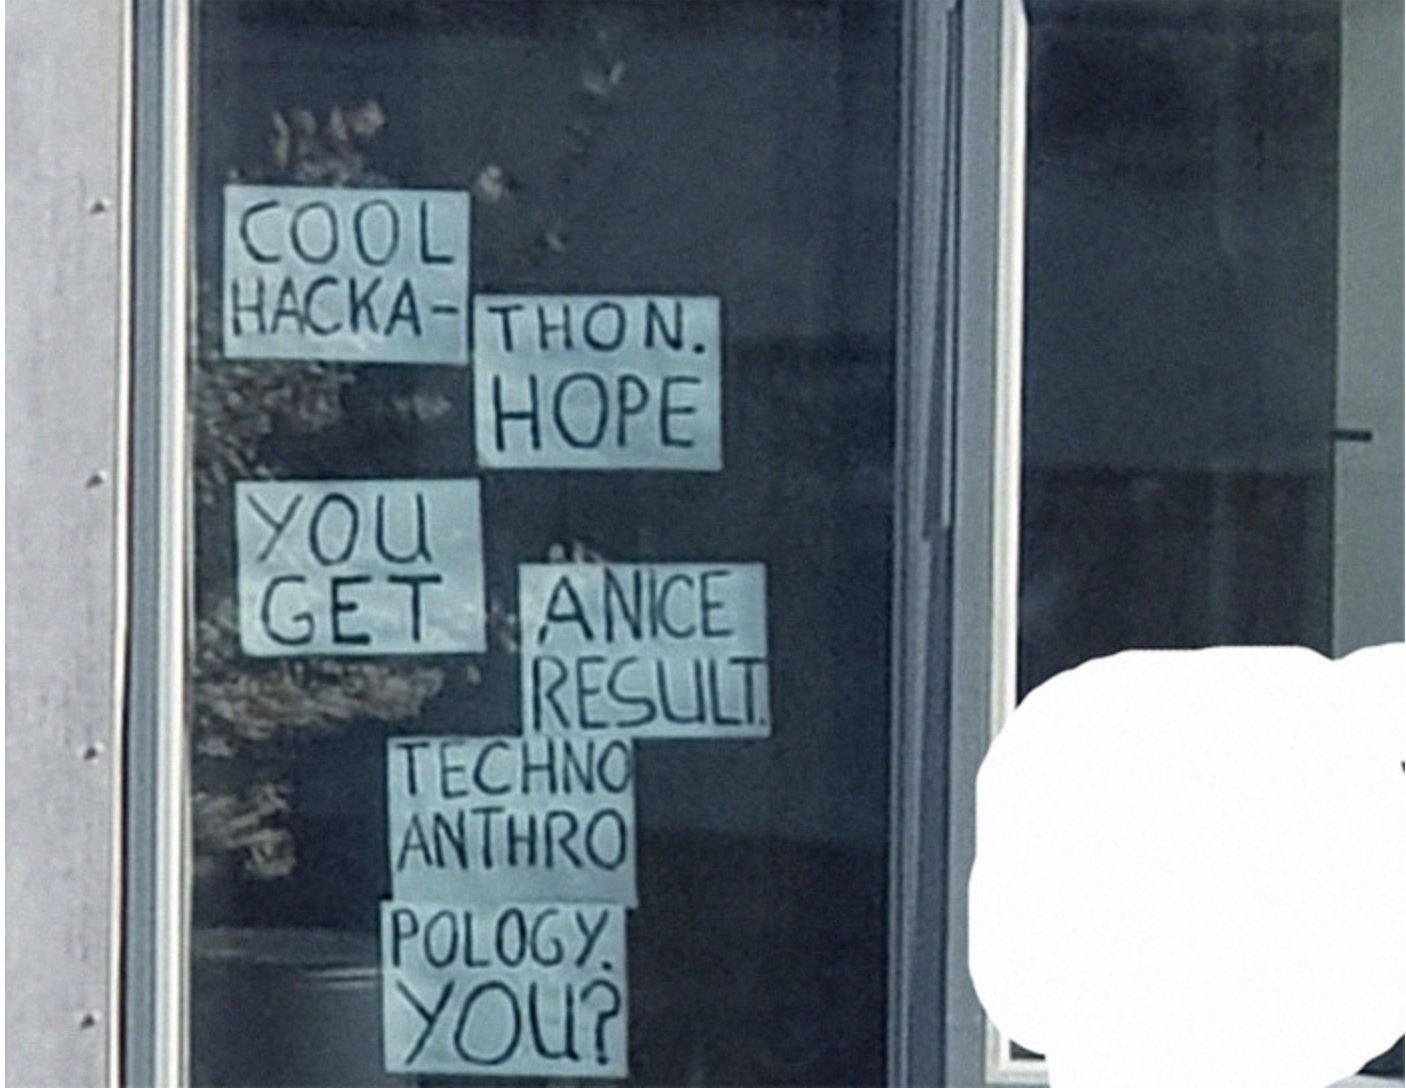 COOL
HACKA-
THON.
HOPE
YOU
GET
A NICE
RESULT.
TECHNO
ANTHRO
POLOGY.
YOU?